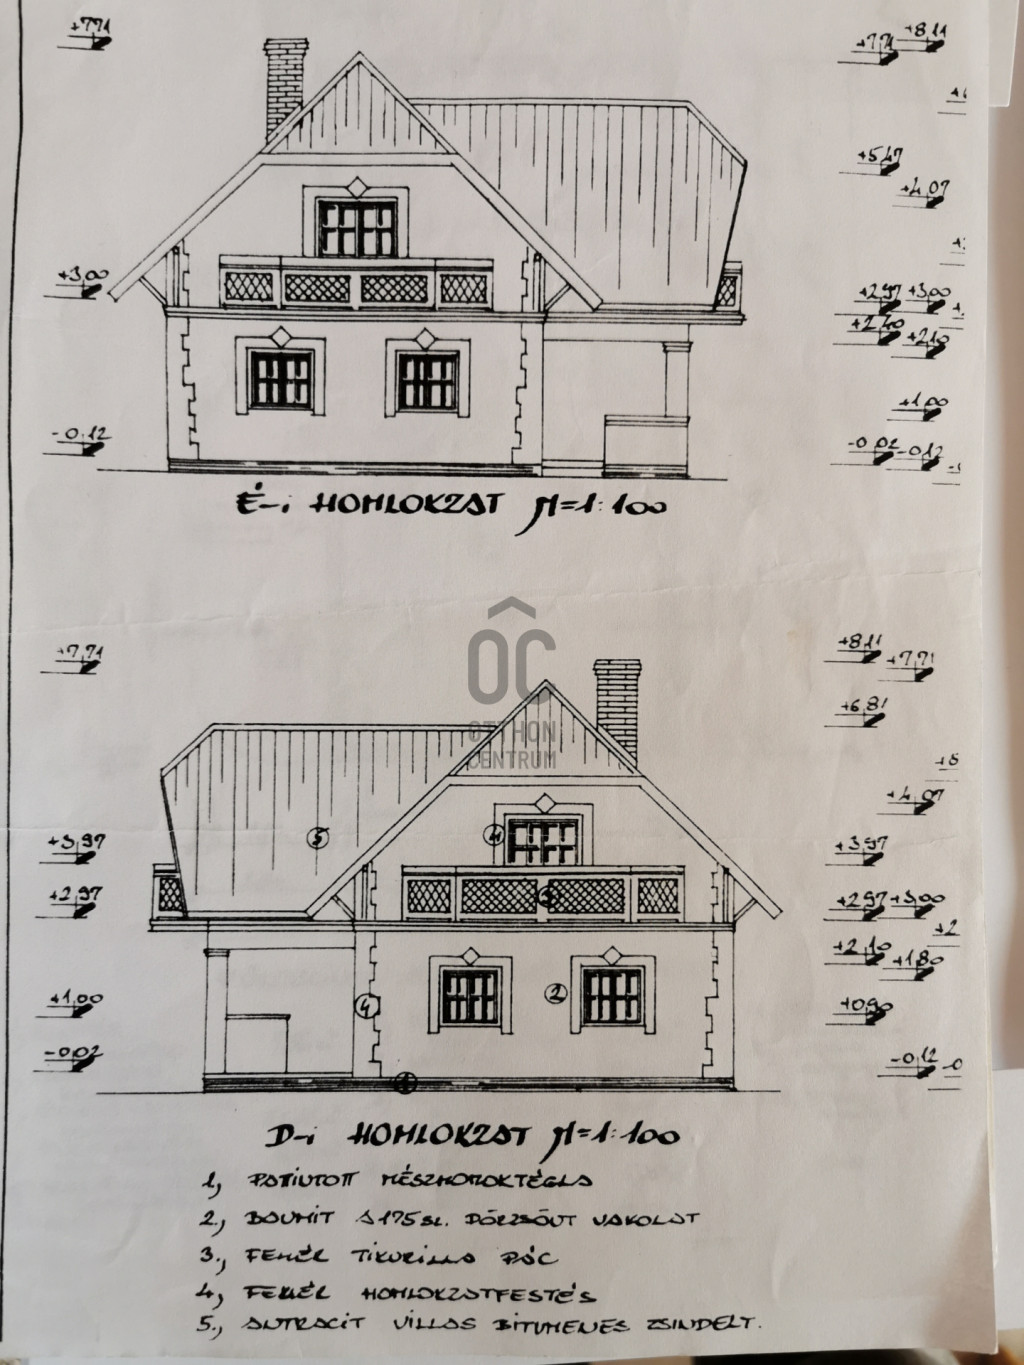 +7,71
+7,71 +8,11
+5,47
+4,07
+3,00
+2,97 +3,00
+2,40 +2,10
+1,00
-0,12
-0,02 -0,12
É-i HOMLOKZAT M=1:100
OC
OTTHON
CENTRUM
+7,71
+8,11 +7,71
+6,81
+4,07
+3,97
+3,97
+2,97
+2,97 +3,00
+2,10 +1,80
+1,00
+0,90
-0,02
-0,12
5
4
3
2
4
1
D-i HOMLOKZAT M=1:100
1, PATINÍTOTT MÉSZHOMOKTÉGLA
2., BAUMIT SZ. DÖRZSÖLT VAKOLAT
3., FEHÉR TIKURILLA PÁC
4, FEHÉR HOMLOKZATFESTÉS
5., ANTRACIT VILLAS BITUMENES ZSINDELY.